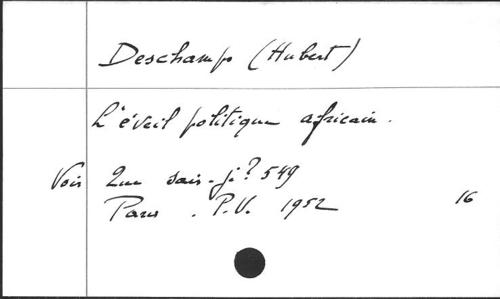 Deschamps (Hubert)
L'éveil politique africain.
Voir Que sais-je? 549
Paris. P.V. 1952 16